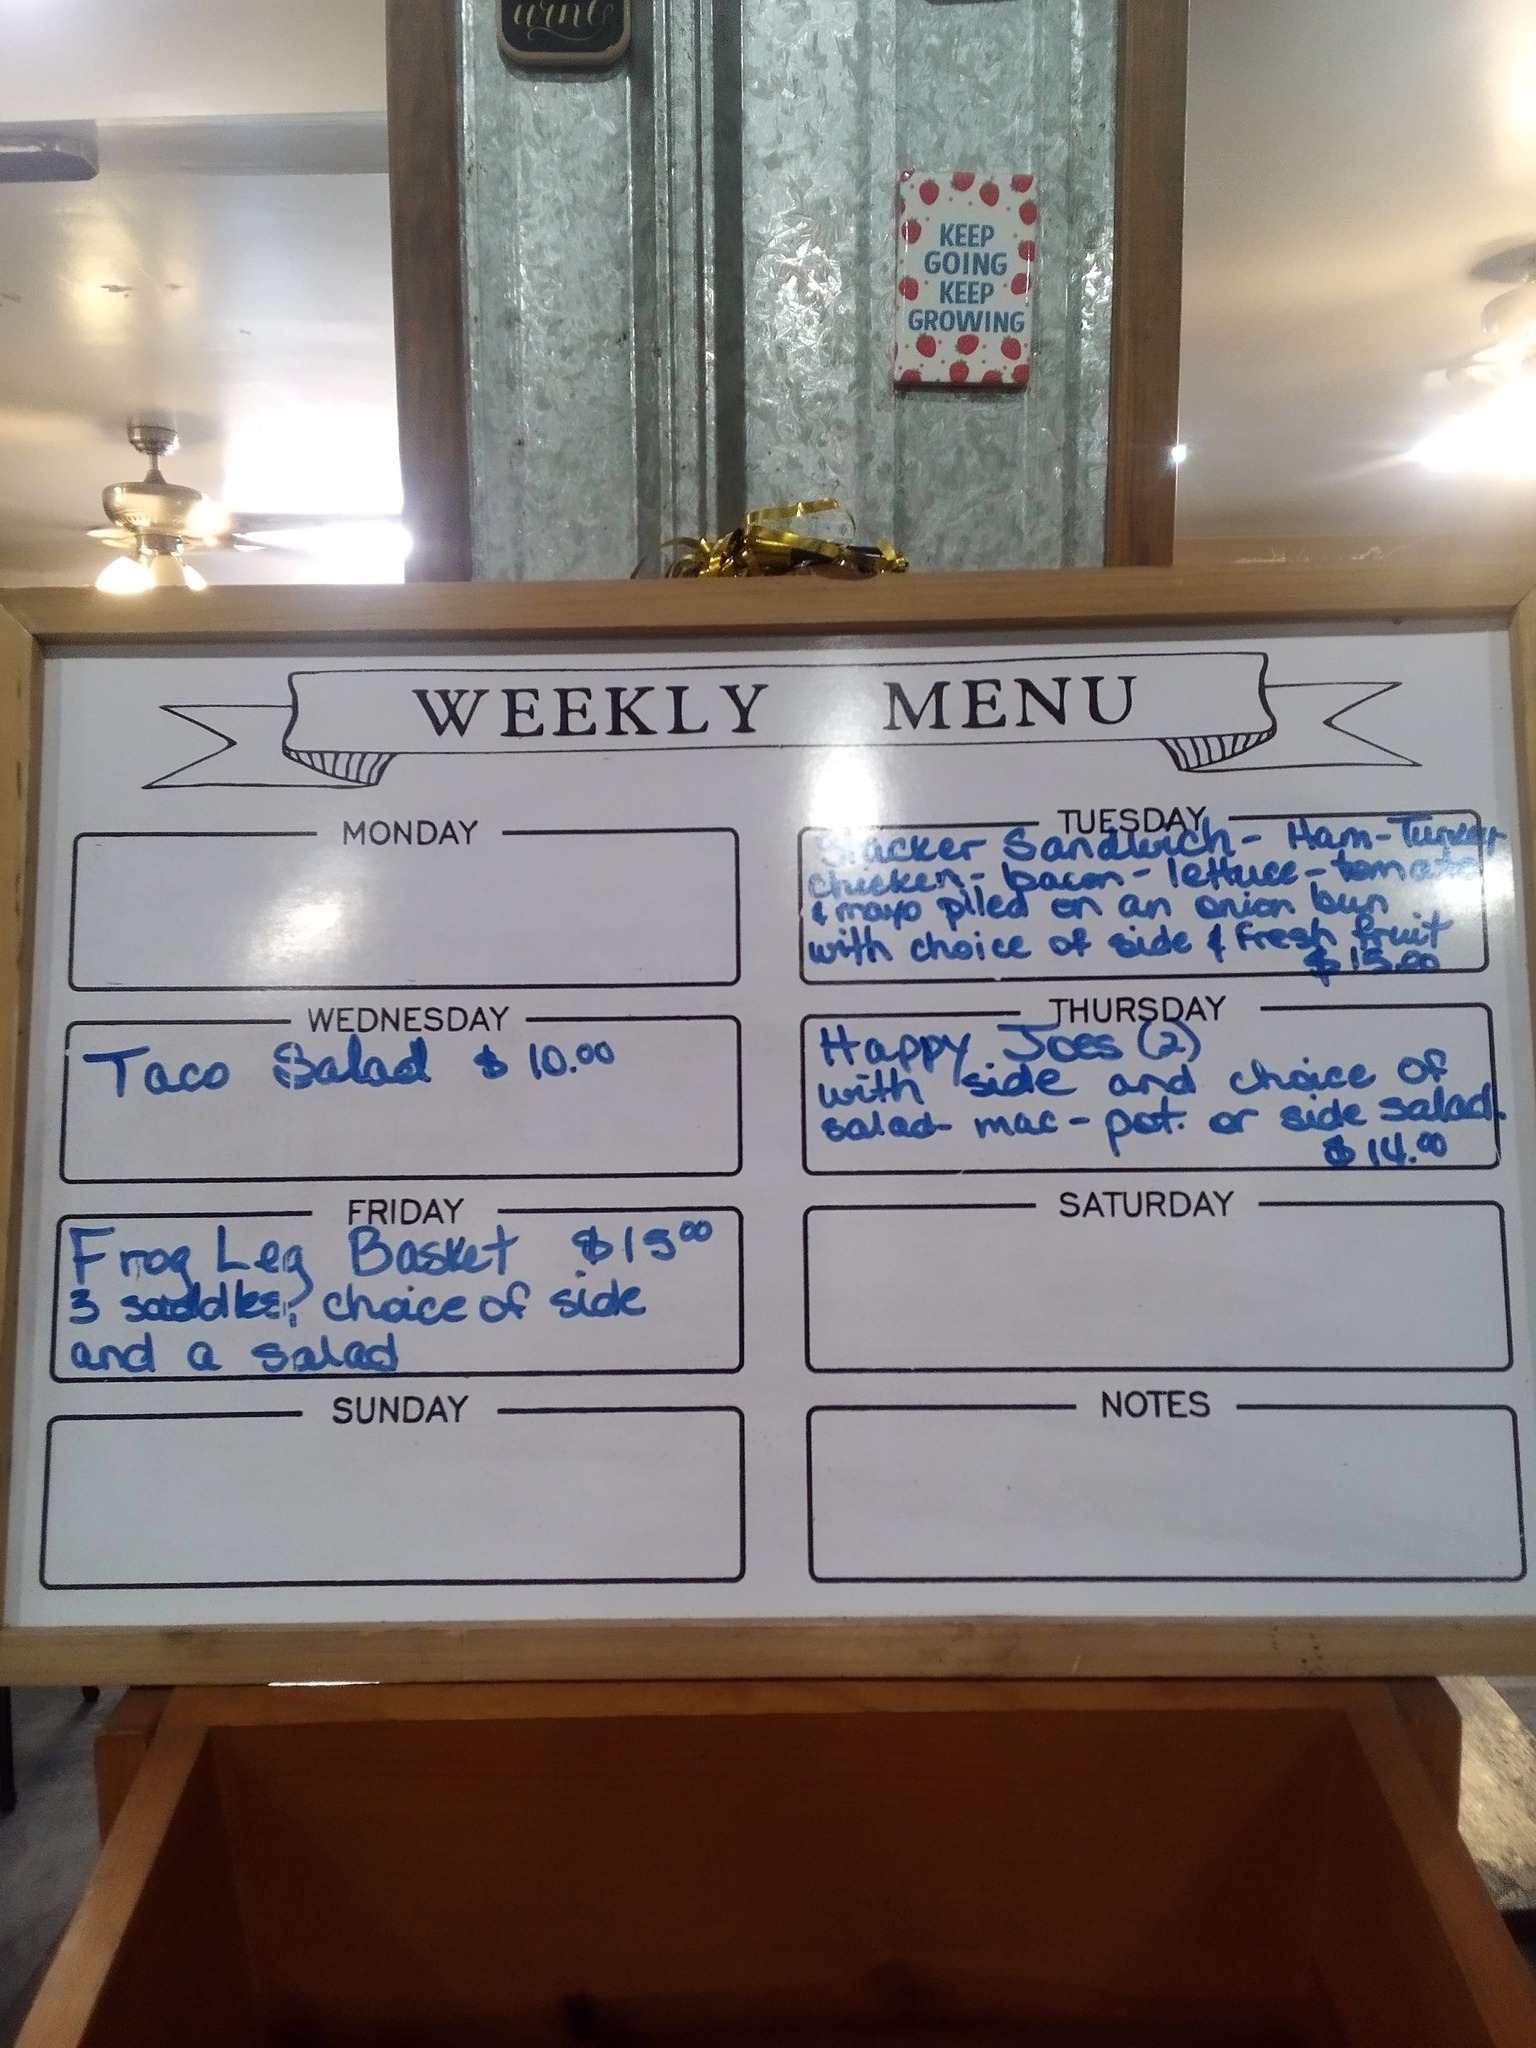 KEEP
GOING
KEEP
GROWING
WEEKLY MENU
MONDAY
TUESDAY
Stacker Sandwich - Ham - Turkey
chicken - bacon - lettuce - tomato
& mayo piled on an onion bun
with choice of side & fresh fruit
$15.00
WEDNESDAY
Taco Salad $10.00
THURSDAY
Happy Joes (2)
with side and choice of
salad - mac - pot. or side salad.
$14.00
FRIDAY
Frog Leg Basket $15.00
3 saddles, choice of side
and a salad
SATURDAY
SUNDAY
NOTES